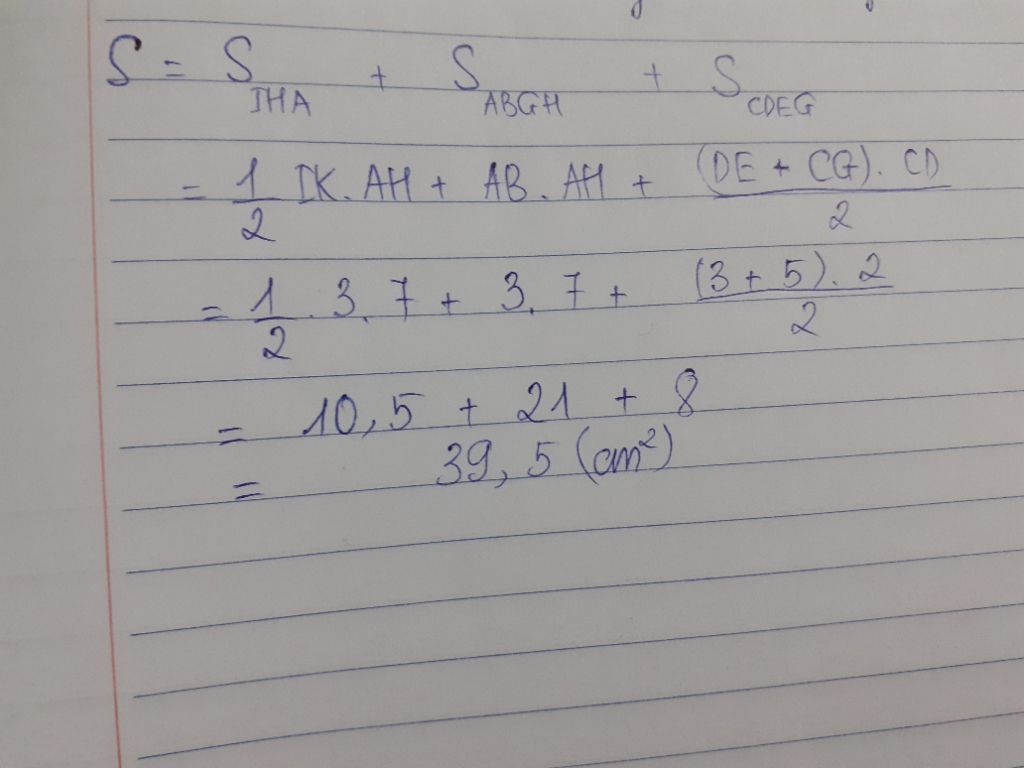 S = S IHA + S ABGH + S CDEG
= 1/2 IK. AH + AB . AH + (DE + CG). CD / 2
= 1/2 . 3. 7 + 3. 7 + (3 + 5). 2 / 2
= 10,5 + 21 + 8
= 39,5 (cm²)